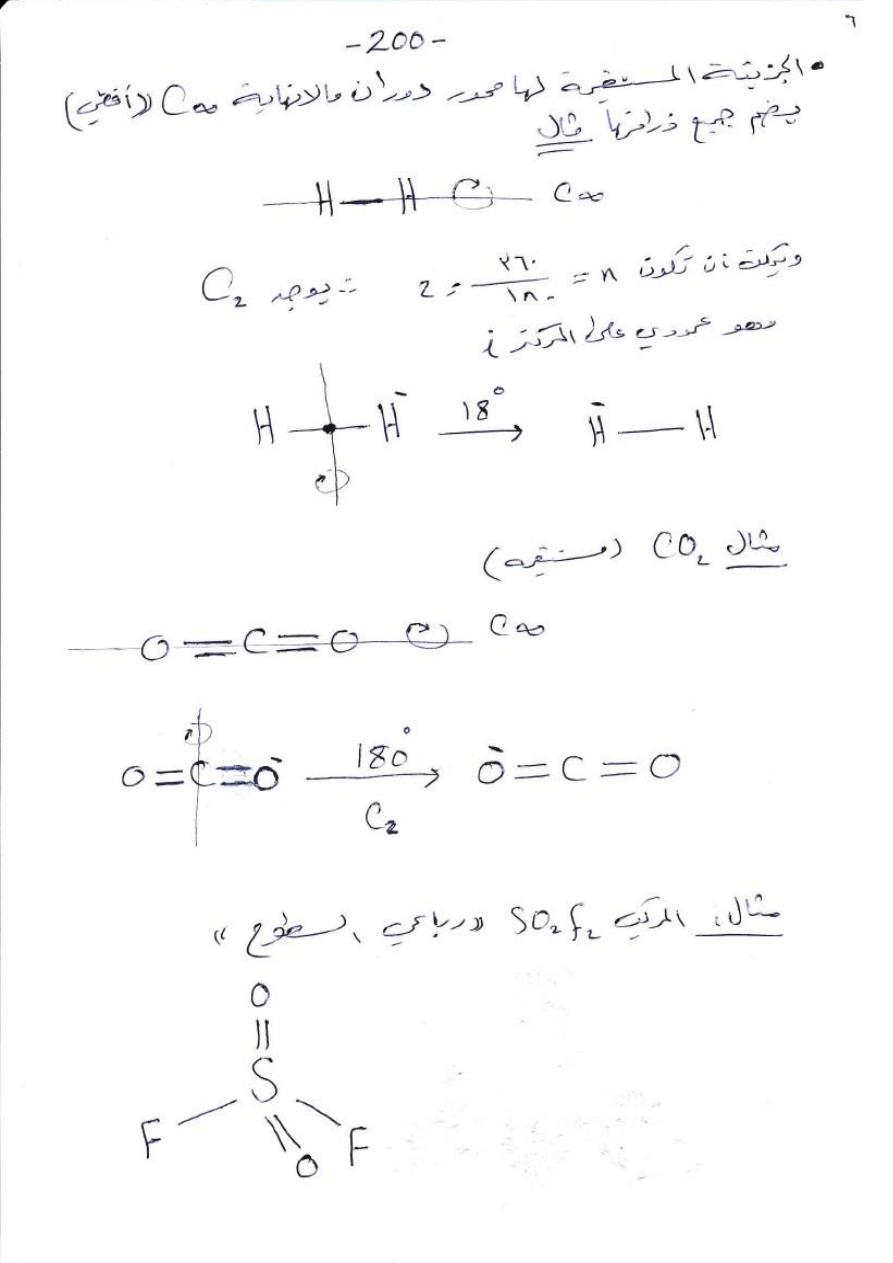 ٦
-200-
• الجزيئة المستقيمة لها محور دوران مالانهاية C∞ ((أفقي)
يضم جميع ذراتها مثال
H—H C∞
ويمكن ان تكون n = ٣٦٠/١٨٠ = 2 ∴ يوجد C₂
وهو عمودي على المركز i
H—H̄ 18° → H̄—H
مثال CO₂ (مستقيمه)
O=C=O C∞
O=C=Ō 180° C₂ → Ō=C=O
مثال: المركب SO₂F₂ ((رباعي السطوح))
O
S
F F
O